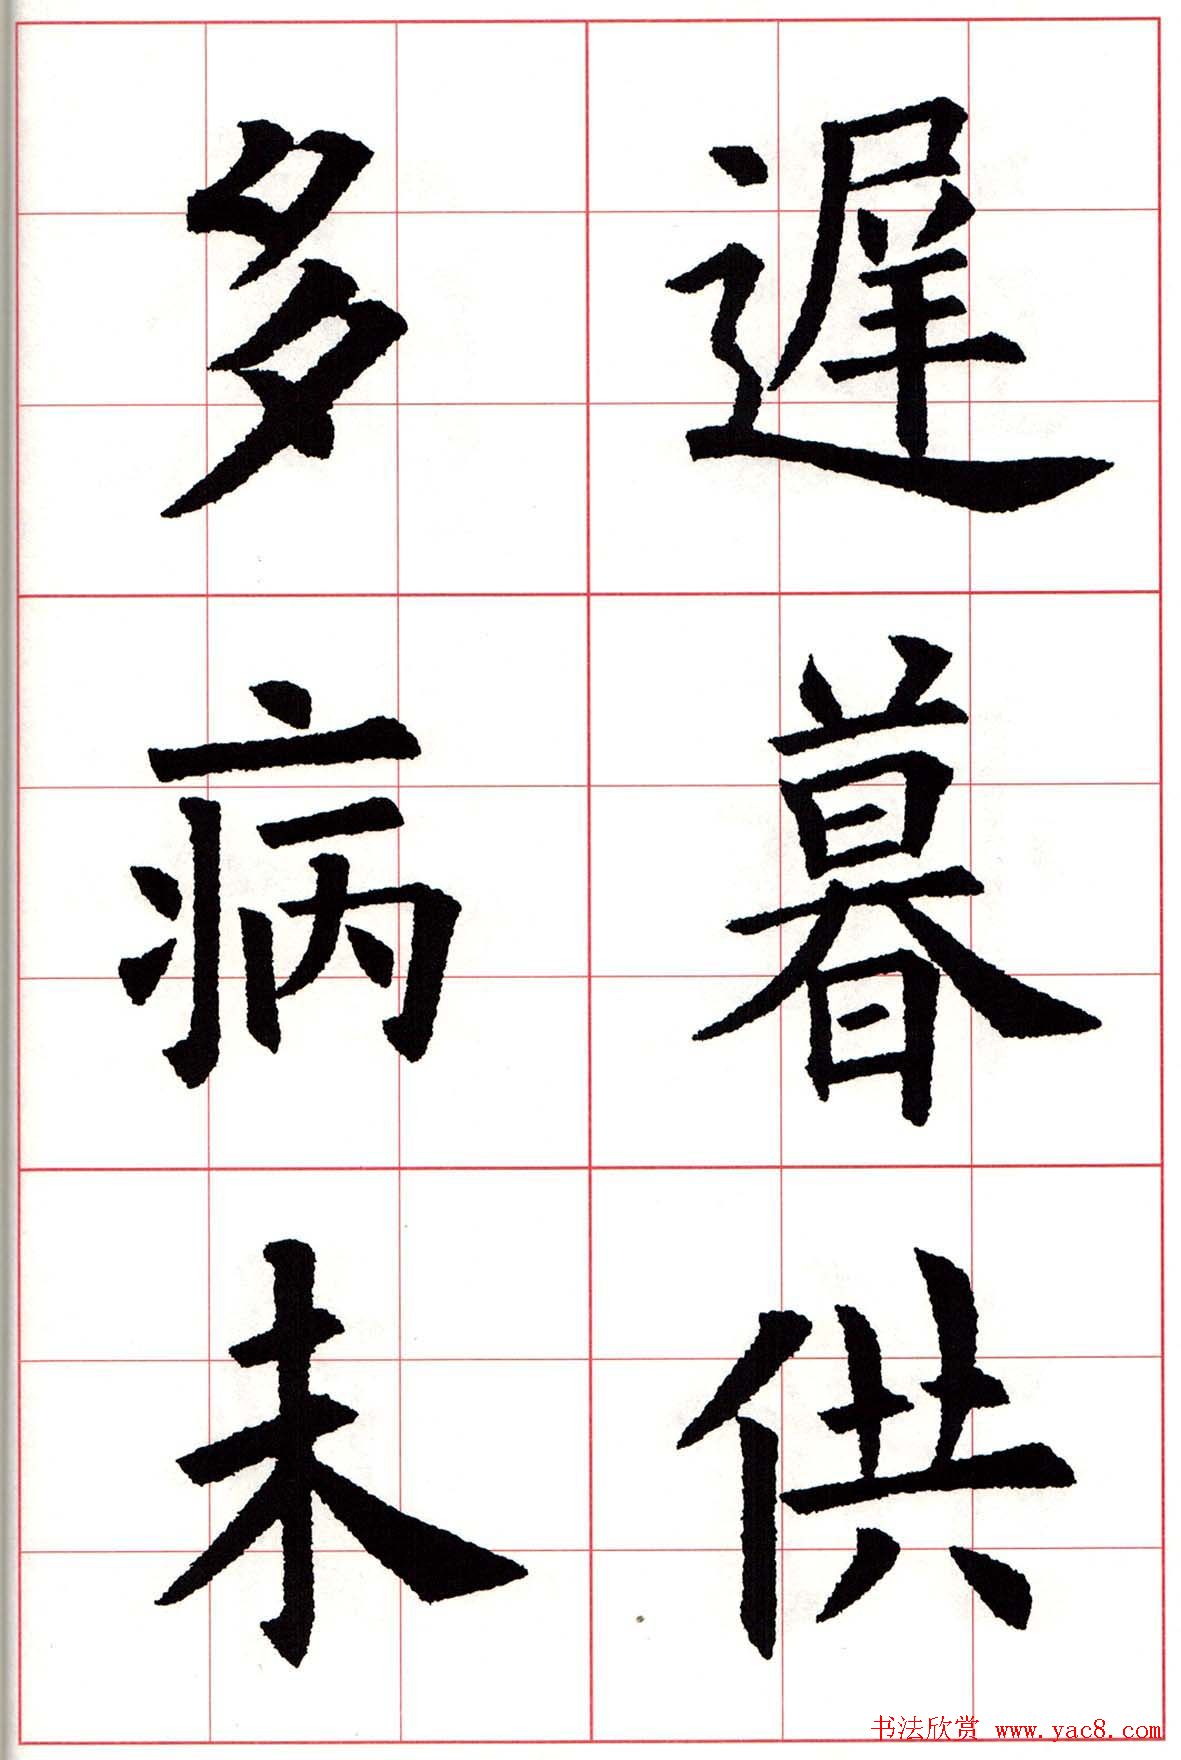 遲暮供
多病未
书法欣赏 www.yac8.com